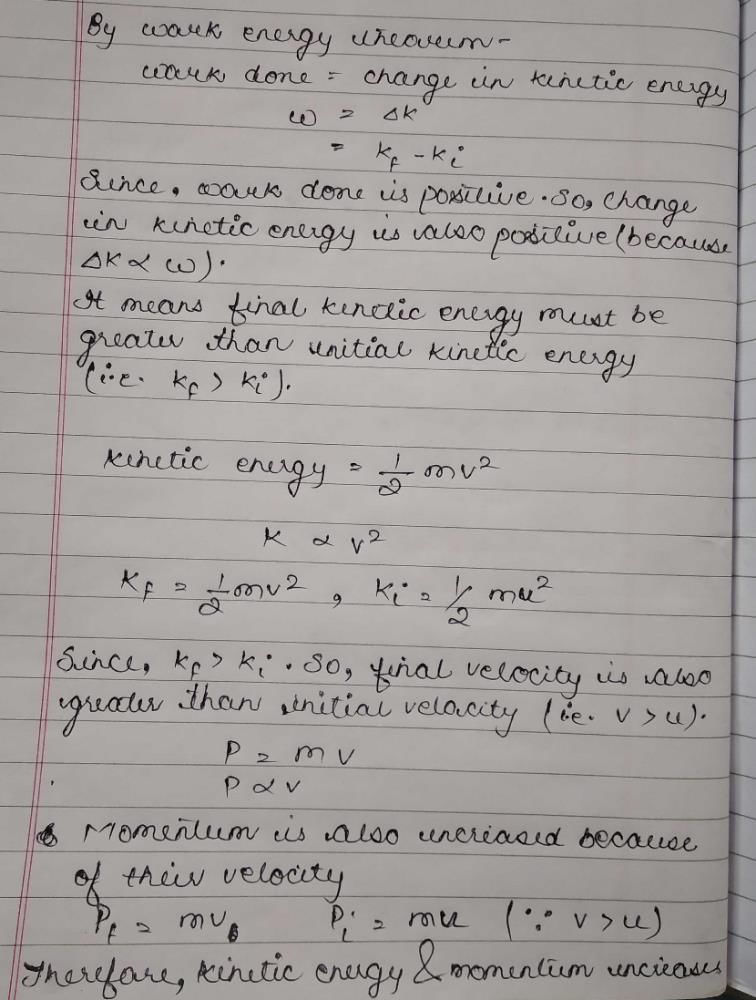 By work energy theorem-
work done = change in kinetic energy
W = ΔK
= Kf - Ki
Since, work done is positive. So, change
in kinetic energy is also positive (because
ΔK ∝ W).
It means final kinetic energy must be
greater than initial kinetic energy
(i.e. Kf > Ki).
Kinetic energy = 1/2 mv²
K ∝ v²
Kf = 1/2 mv², Ki = 1/2 mu²
Since, Kf > Ki. So, final velocity is also
greater than initial velocity (i.e. v > u).
P = mv
P ∝ v
Momentum is also increased because
of their velocity
Pf = mv Pi = mu (∵ v > u)
Therefore, kinetic energy & momentum increases